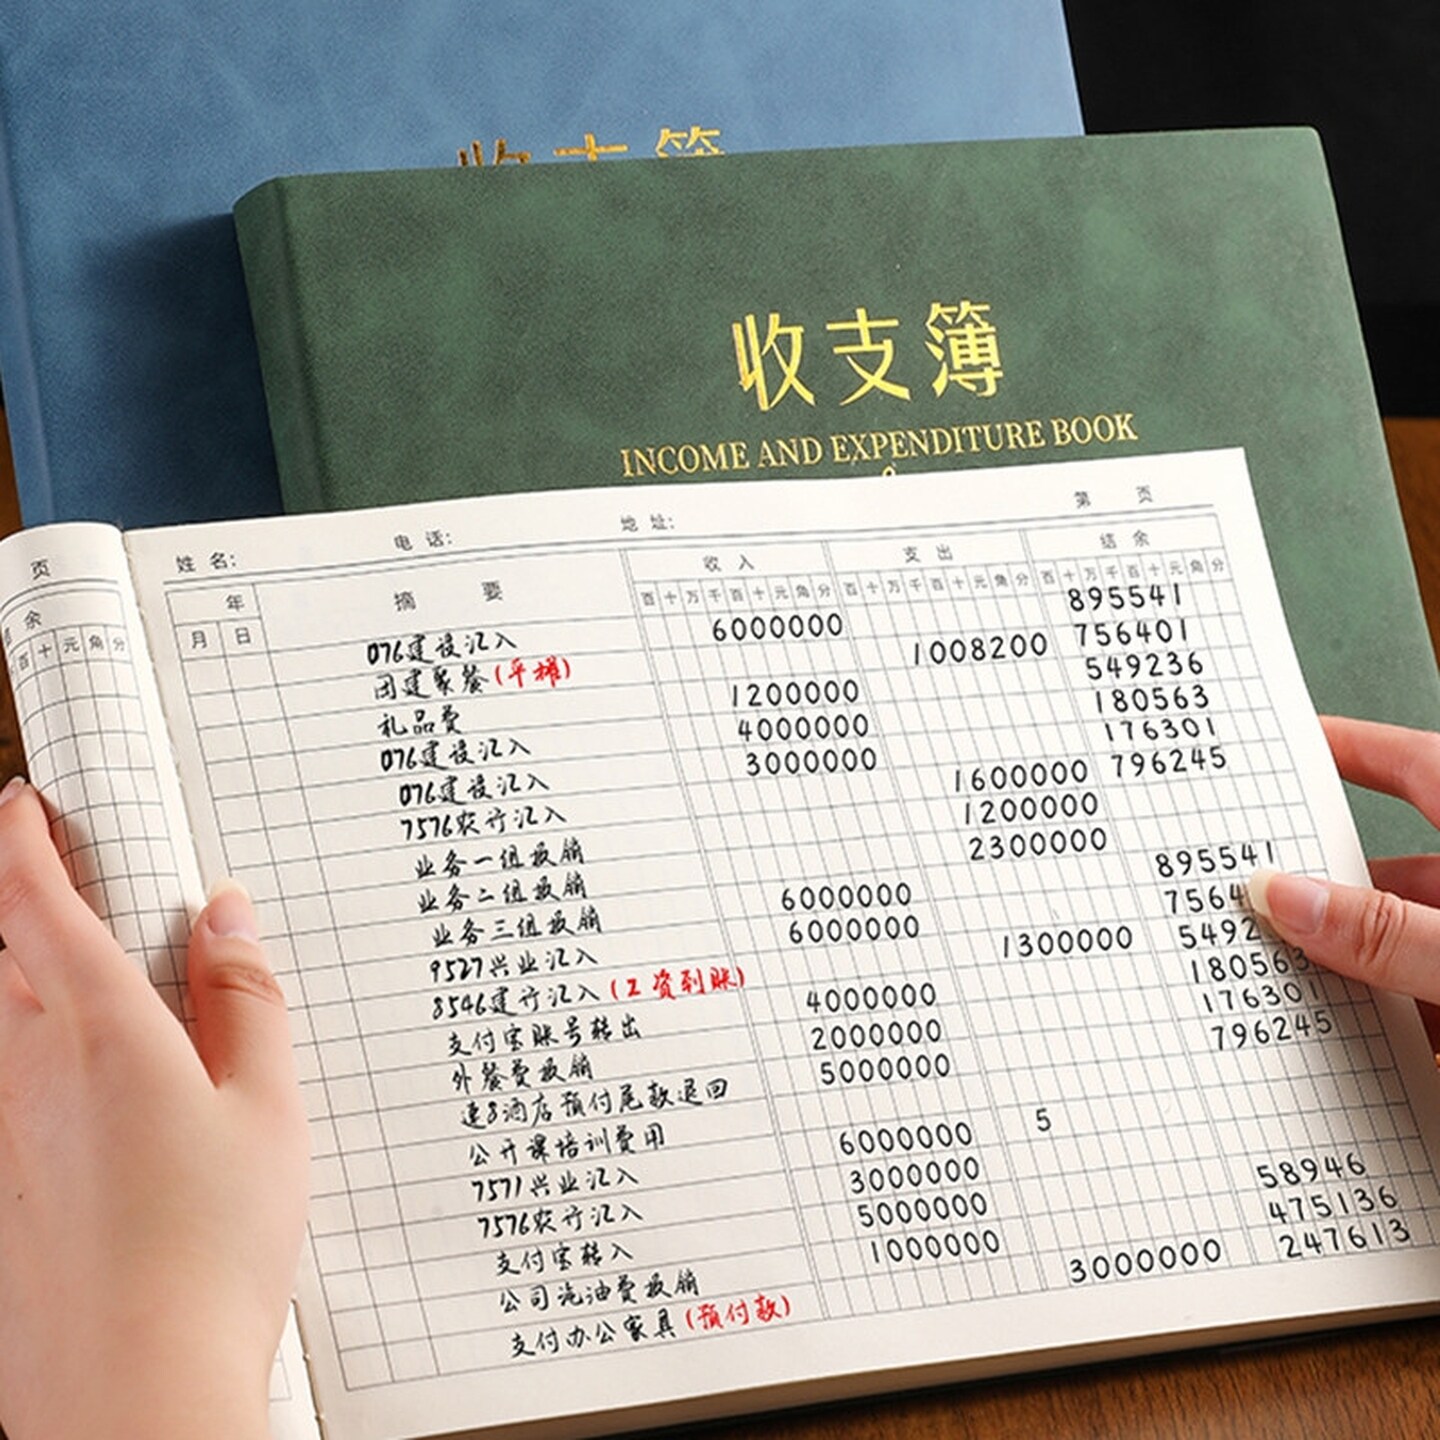 收支簿
收支簿
INCOME AND EXPENDITURE BOOK
第 页
姓 名: 电 话: 地 址:
年 摘 要 收 入 支 出 结 余
月 日 百 十 万 千 百 十 元 角 分 百 十 万 千 百 十 元 角 分 百 十 万 千 百 十 元 角 分
页
余
百 十 元 角 分
076建设汇入 6000000 895541
团建聚餐(平摊) 1008200 756401
礼品费 1200000 549236
076建设汇入 4000000 180563
076建设汇入 3000000 176301
7576农行汇入 1600000 796245
业务一组报销 1200000
业务二组报销 2300000
业务三组报销 6000000 895541
9527兴业汇入 6000000 7564
8546建行汇入(工资到账) 1300000 5492
支付宝账号转出 4000000 180563
外餐费报销 2000000 176301
速8酒店预付尾款退回 5000000 796245
公开课培训费用 5
7571兴业汇入 6000000
7576农行汇入 3000000
支付宝转入 5000000 58946
公司汽油费报销 1000000 475136
支付办公家具(预付款) 3000000 247613